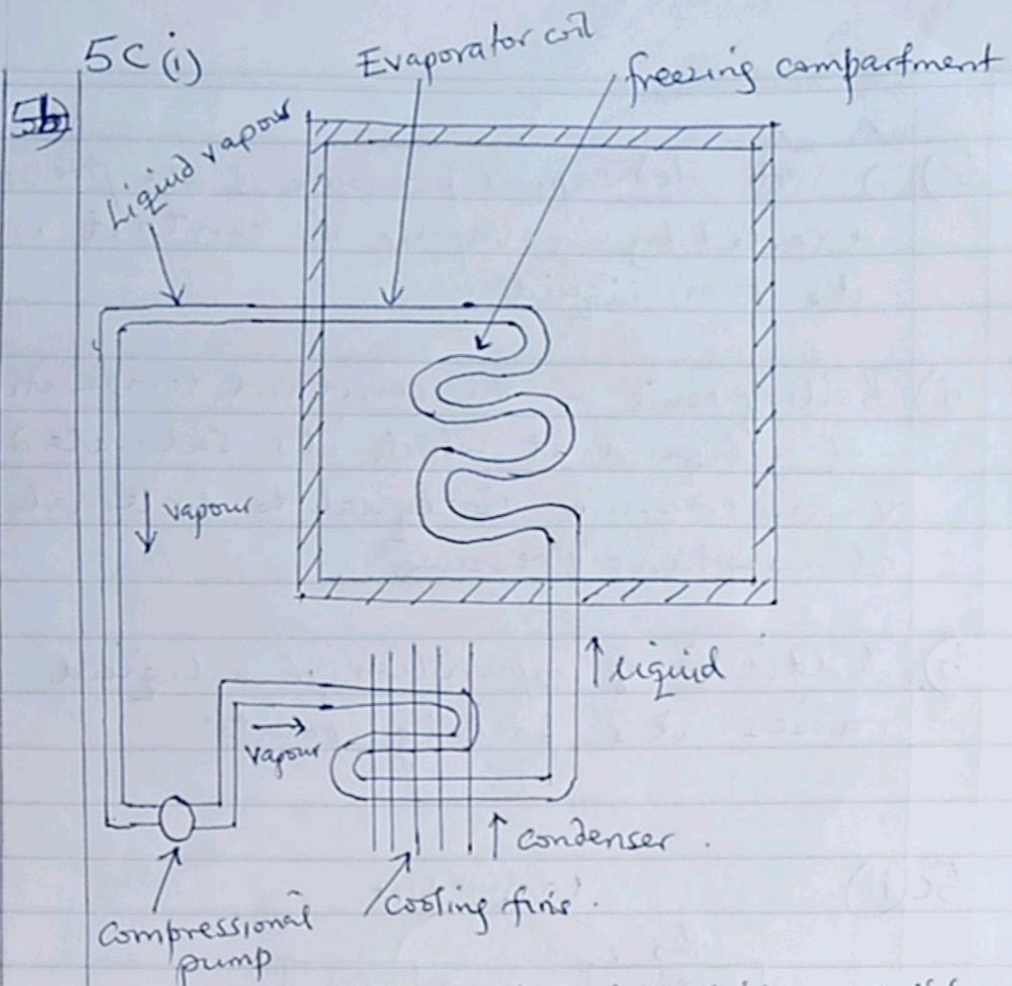 5C (i)
5b)
Evaporator coil
freezing compartment
Liquid vapour
vapour
liquid
vapour
condenser.
cooling fins.
compressional
pump